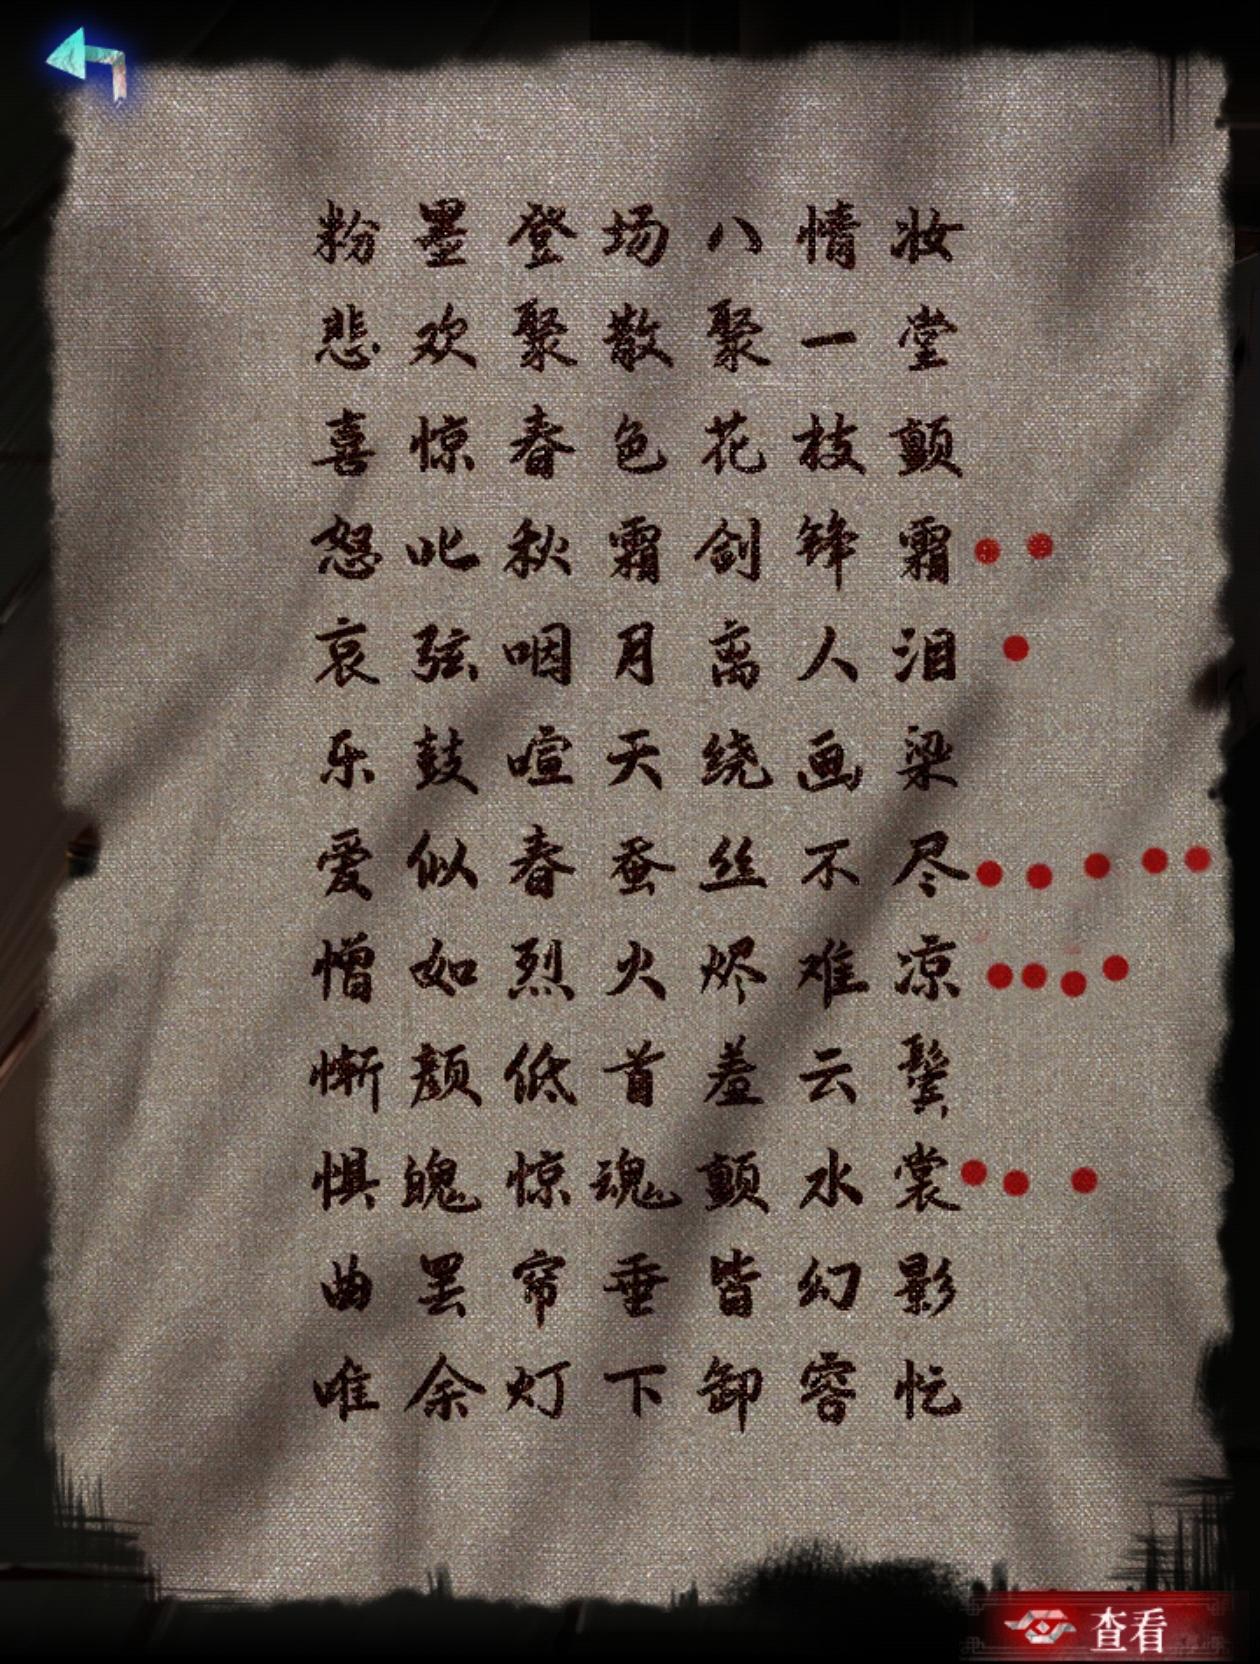 粉墨登场八情妆
悲欢聚散聚一堂
喜惊春色花枝颤
怒叱秋霜剑锋霜
哀弦咽月离人泪
乐鼓喧天绕画梁
爱似春蚕丝不尽
憎如烈火烬难凉
惭颜低首羞云鬓
惧魄惊魂颤水裳
曲罢帘垂皆幻影
唯余灯下卸容忙
查看